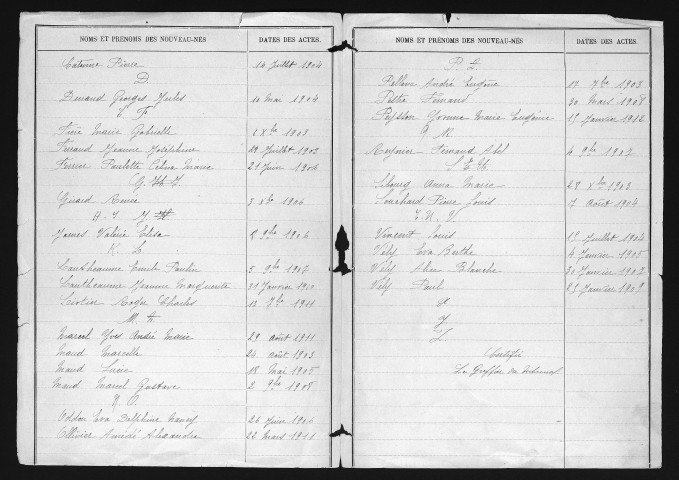 NOMS ET PRÉNOMS DES NOUVEAU-NÉS DATES DES ACTES.
Pierre 14 Juillet 1904
D
Durand Georges Jules 10 Mai 1904
E F
Marie Gabrielle 6 Xbre 1903
Jeanne Joséphine Juillet 1902
Ferrier Paulette Marie 21 Juin 1906
G
Girard 3 Xbre 1906
H I J
James Valérie Elisa 2 9bre 1906
K L
Émile Paulin 5 9bre 1907
Jeanne Marguerite 31 Janvier 1910
Roger Charles 13 7bre 1911
M
Marcel Yves André Marie 29 août 1911
Maud Marcelle 24 août 1903
Maud 18 Mai 1905
Maud Marcel Gustave 2 9bre 1908
N O
Oddon Eva Delphine Nancy 26 Juin 1906
Ollivier Amédé Alexandre 22 Mars 1911
NOMS ET PRÉNOMS DES NOUVEAU-NÉS DATES DES ACTES.
P Q
André Eugène 17 7bre 1903
Fernand 30 Mars 1908
Peysson Yvonne Marie Eugénie Janvier 1912
R
Reynier Fernand Abel 4 9bre 1907
Anna Marie 28 Xbre 1903
Souchard Pierre Louis 7 Août 1904
Vincent Louis Juillet 1904
Vély Eva Berthe 4 Janvier 1905
Vély Alice Blanche 30 Janvier 1907
Vély Paul Janvier 1909
X
Y
Z
Certifié
Le Greffier du Tribunal